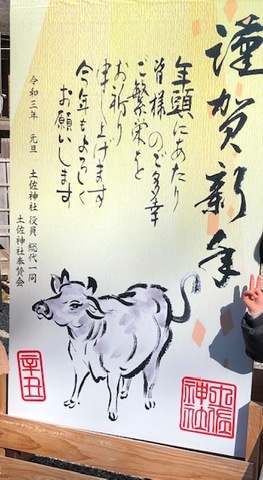 謹賀新年
年頭にあたり
皆様のご多幸
ご繁栄を
お祈り
申し上げます
今年もよろしく
お願いします
令和三年 元旦 土佐神社 役員 総代一同
土佐神社奉賛会
辛丑
土佐神社